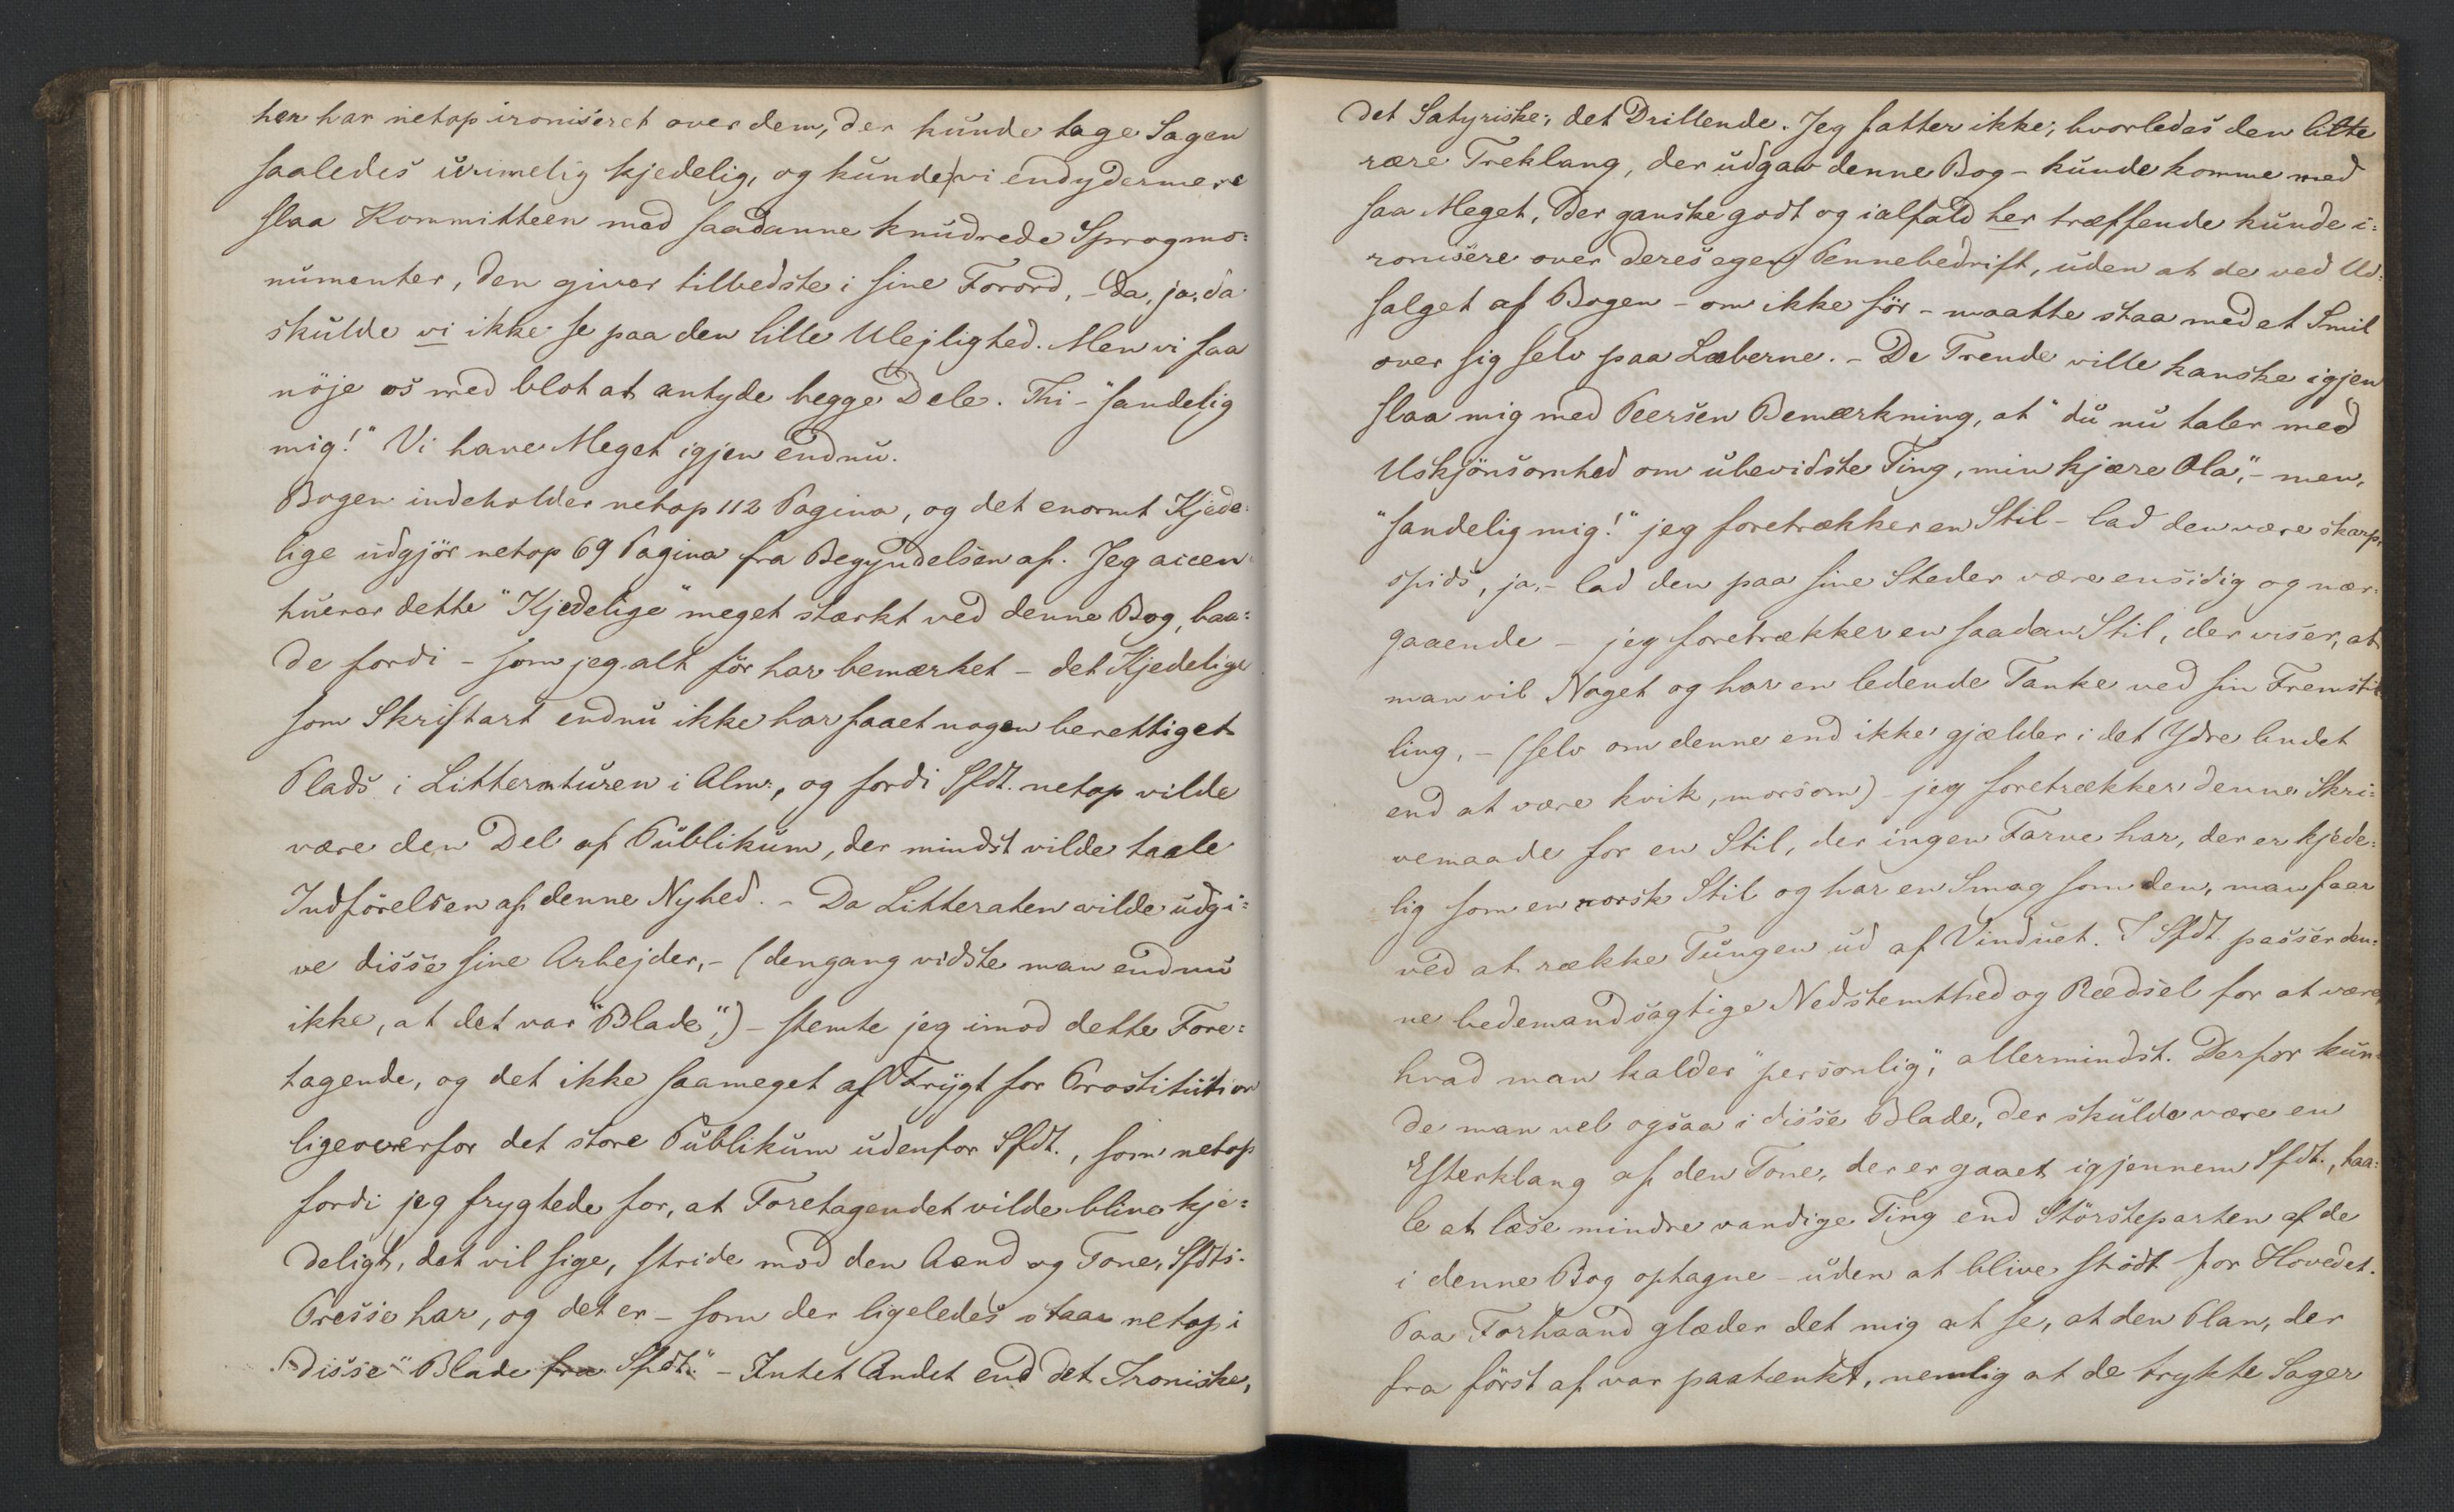 her har netop ironiseret over dem, der kunde tage Sagen
saaledes urimelig kjedelig, og kunde vi endydermere
slaa Kommitteen med saadanne knudrede Sprogmo=
numenter, den giver tilbedste i sine Forord, – da, ja, da
skulde vi ikke se paa den lille Ulejlighed. Men vi faa
nöje os med blot at antyde begge Dele. Thi – "sandelig
mig!" Vi have Meget igjen endnu.
Bogen indeholder netop 112 Pagina, og det enormt Kjede=
lige udgjör netop 69 Pagina fra Begyndelsen af. Jeg accen
tuerer dette "Kjedelige" meget stærkt ved denne Bog, baa=
de fordi – som jeg alt för har bemærket – det Kjedelige
som Skriftart endnu ikke har faaet nogen berettiget
Plads i Litteraturen i Alm., og fordi Sfdt. netop vilde
være den Del af Publikum, der mindst vilde taale
Indförelsen af denne Nyhed. – Da Litteraten vilde udgi=
ve disse sine Arbejder, – (dengang vidste man endnu
ikke, at det var "Blade",) – stemte jeg imod dette Fore=
tagende, og det ikke saameget af Frygt for Prostitution
ligeoverfor det store Publikum udenfor Sfdt., som netop
fordi jeg frygtede for, at Foretagendet vilde blive kje=
deligt, det vil sige, stride mod den Aand og Tone, Sfdts.
Presse har, og det er – som der ligeledes staar netop i
disse "Blade fra Sfdt." – Intet Andet end det Ironiske,
det Satyriske, det Drillende. Jeg fatter ikke, hvorledes den litte
rære Treklang, der udgav denne Bog – kunde komme med
saa Meget, der ganske godt og ialfald her træffende kunde i=
ronisere over deres egen Pennebedrift, uden at de ved Ud=
salget af Bogen – om ikke för – maatte staa med et Smil
over sig selv paa Læberne. – De Trende ville kanske igjen
slaa mig med Peersen Bemærkning, at "du nu taler med
Uskjönsomhed om ubevidste Ting, min kjære Ola", – men,
"sandelig mig!" jeg foretrækker en Stil – lad den være skarp,
spids, ja, – lad den paa sine Steder være ensidig og nær=
gaaende – jeg foretrækker en saadan Stil, der viser, at
man vil Noget og har en ledende Tanke ved sin Fremstil
ling, – (selv om denne end ikke gjælder i det Ydre Andet
end at være kvik, morsom) – jeg foretrækker denne Skri=
vemaade for en Stil, der ingen Farve har, der er kjede=
lig som en norsk Stil og har en Smag som den, man faar
ved at række Tungen ud af Vinduet. I Sfdt. passer den=
ne bedemandsagtige Nedstemthed og Rædsel for at være,
hvad man kalder "personlig", allermindst. Derfor kun
de man vel ogsaa i disse Blade, der skulde være en
Efterklang af den Tone, der er gaaet igjennem Sfdt., taa=
le at læse mindre vandige Ting end Störsteparten af de
i denne Bog optagne – uden at blive stödt for Hovedet.
Paa Forhaand glæder det mig at se, at den Plan, der
fra först af var paatænkt, nemlig at de trykte Sager